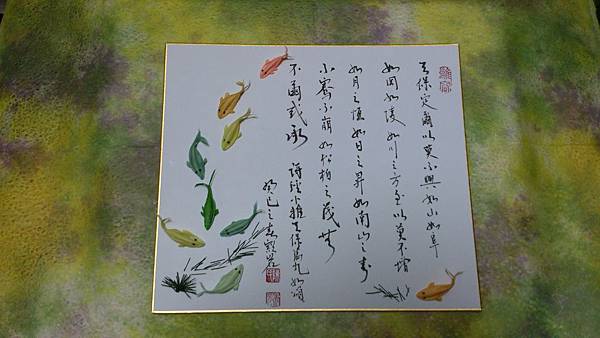 天保定爾以莫不興如山如阜
如岡如陵如川之方至以莫不增
如月之恆如日之昇如南山之壽
不騫不崩如松柏之茂無
不爾或承 詩經小雅天保篇九如頌
癸巳之春